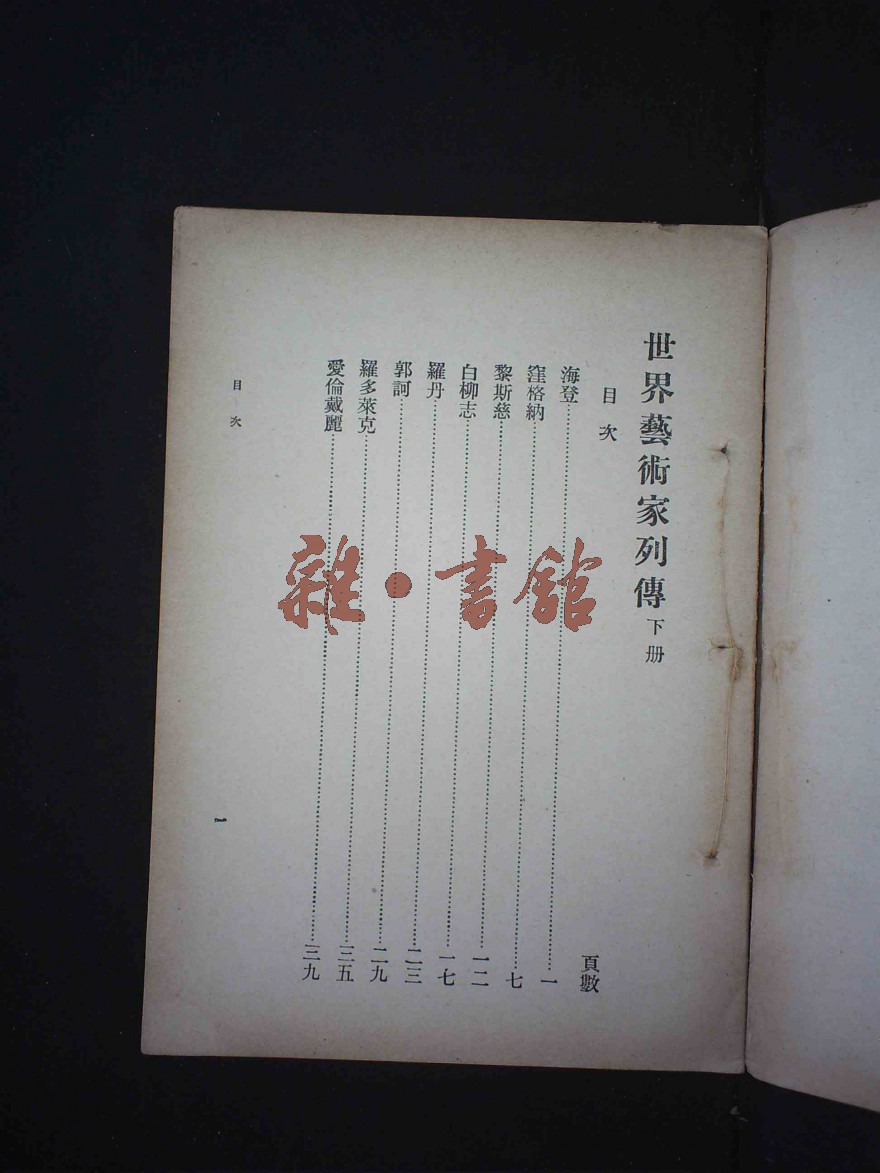 世界藝術家列傳 下册
目次
頁數
海登 一
窪格納 七
黎斯慈 一二
白柳志 一七
羅丹 二三
郭訶 二九
羅多萊克 三五
愛倫戴麗 三九
目次
一
雜·書館